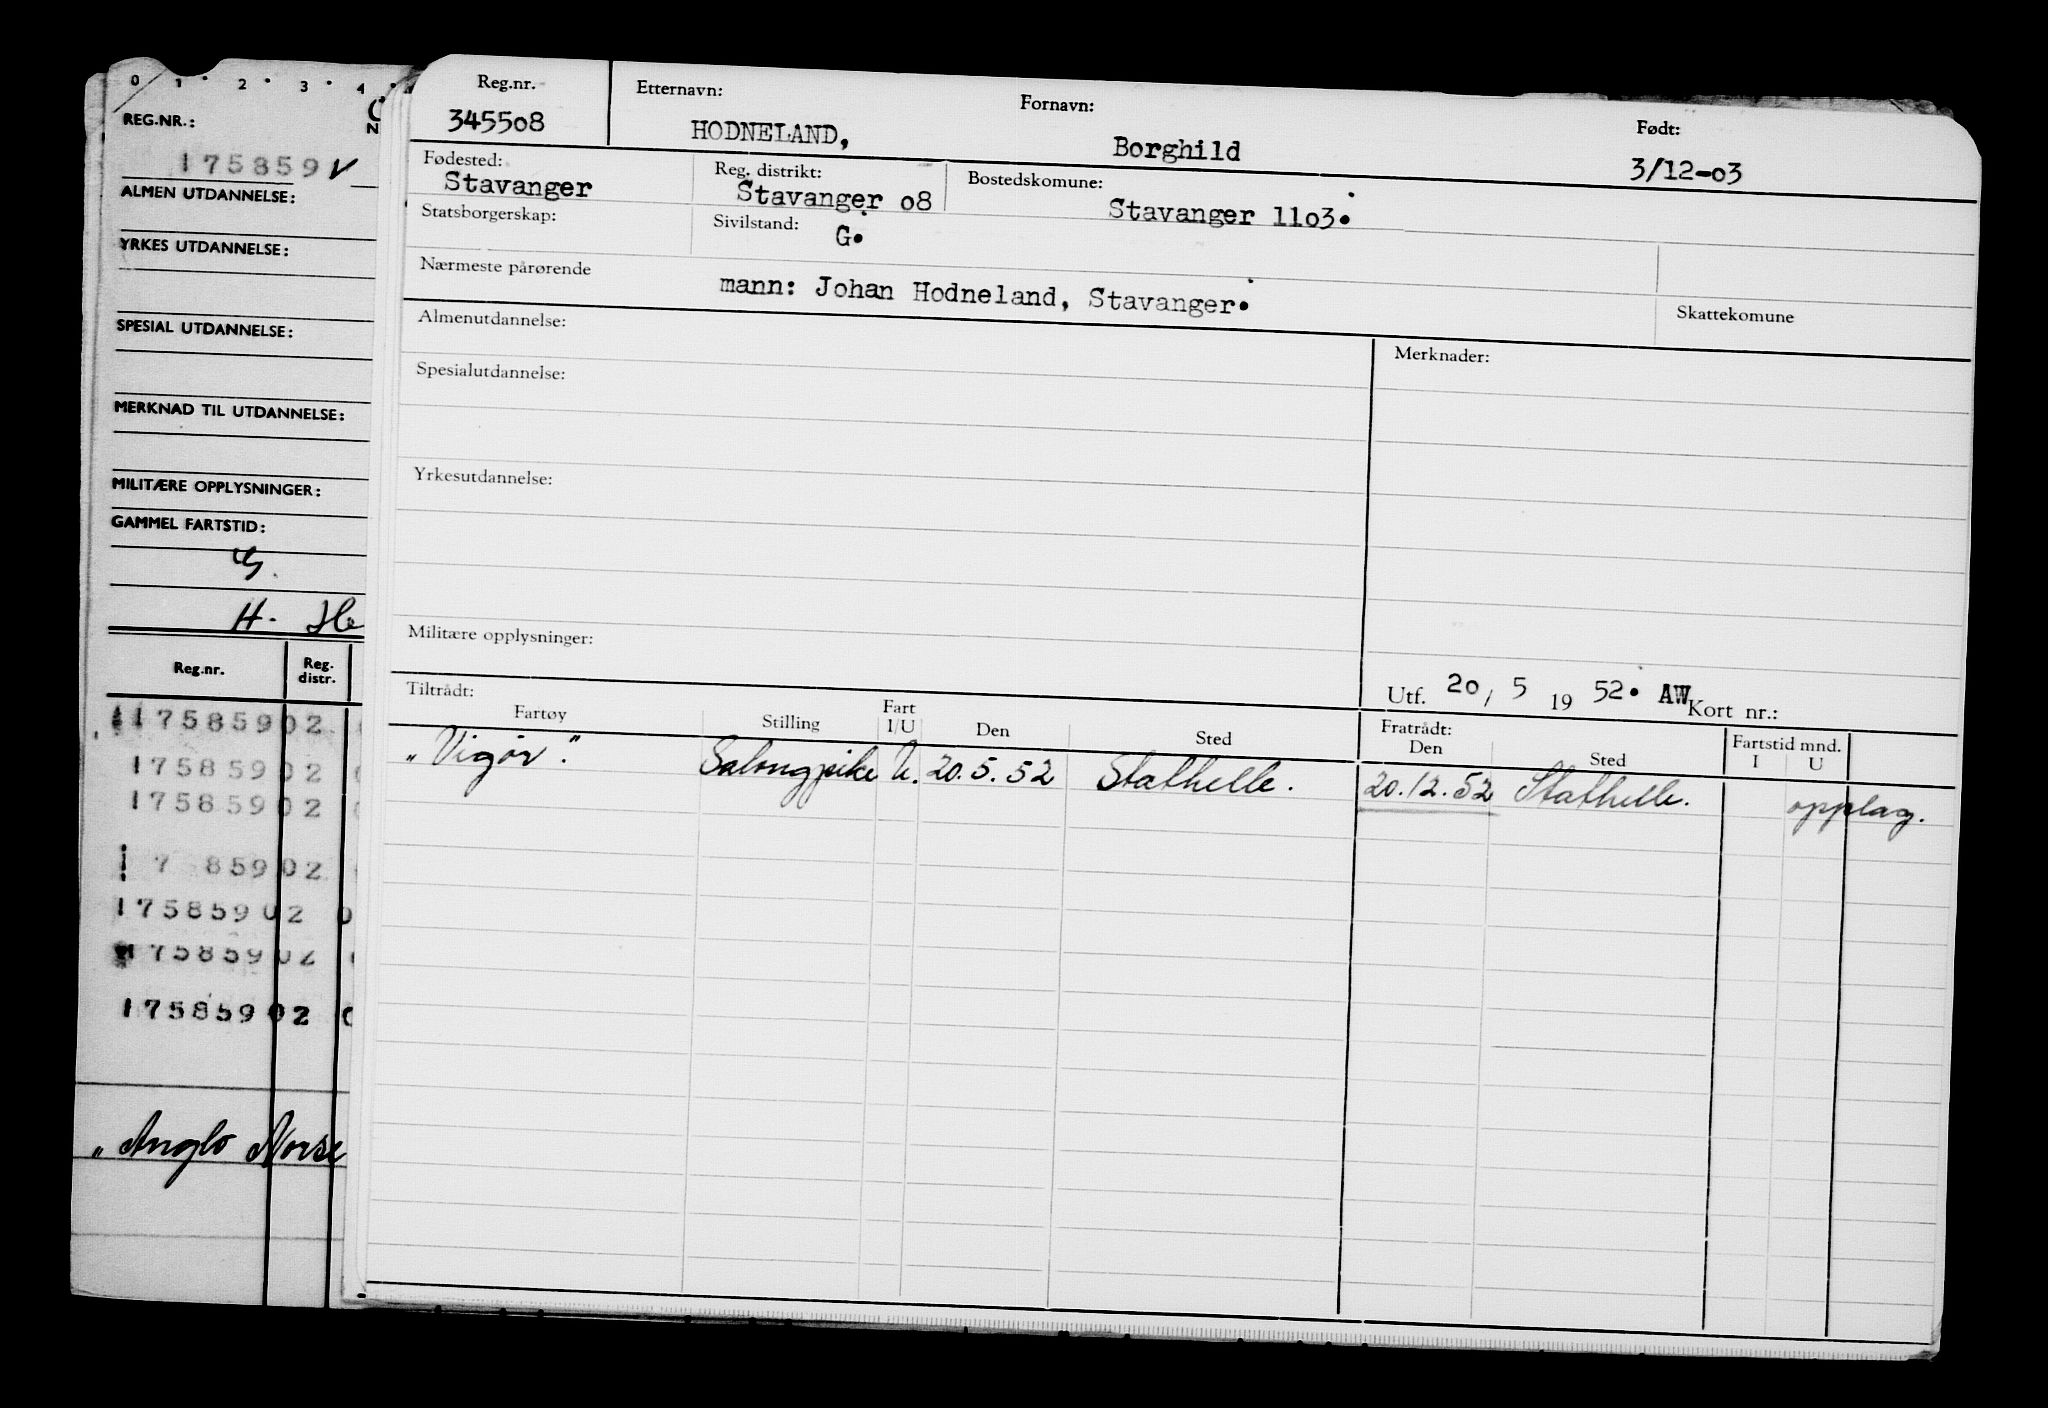 0 1 · 2 · 3 · 4 ·
REG.NR.:
175859 V
ALMEN UTDANNELSE:
YRKES UTDANNELSE:
SPESIAL UTDANNELSE:
MERKNAD TIL UTDANNELSE:
MILITÆRE OPPLYSNINGER:
GAMMEL FARTSTID:
H.
Reg.nr. Reg. distr.
17585902
17585902
17585902
1 7 85902
17585902 0
17585902
17585902 0
„Anglo Norse
Reg.nr. Etternavn: Fornavn: Født:
345508 HODNELAND, Borghild 3/12-03
Fødested: Reg. distrikt: Bostedskomune:
Stavanger Stavanger 08 Stavanger 1103.
Statsborgerskap: Sivilstand: G.
Nærmeste pårørende mann: Johan Hodneland, Stavanger.
Skattekomune
Almenutdannelse: Merknader:
Spesialutdannelse:
Yrkesutdannelse:
Militære opplysninger:
Utf. 20/ 5 19 52. AW Kort nr.:
Tiltrådt: Fratrådt: Fartstid mnd.
Fartøy Stilling Fart I/U Den Sted Den Sted I U
„Vigør". Salongpike U. 20.5.52 Stathelle. 20.12.52 Stathelle. opplag.